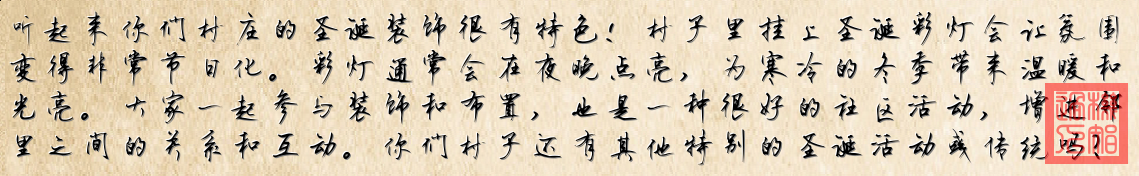 听起来你们村庄的圣诞装饰很有特色！村子里挂上圣诞彩灯会让氛围
变得非常节日化。彩灯通常会在夜晚点亮，为寒冷的冬季带来温暖和
光亮。大家一起参与装饰和布置，也是一种很好的社区活动，增进邻
里之间的关系和互动。你们村子还有其他特别的圣诞活动或传统吗？